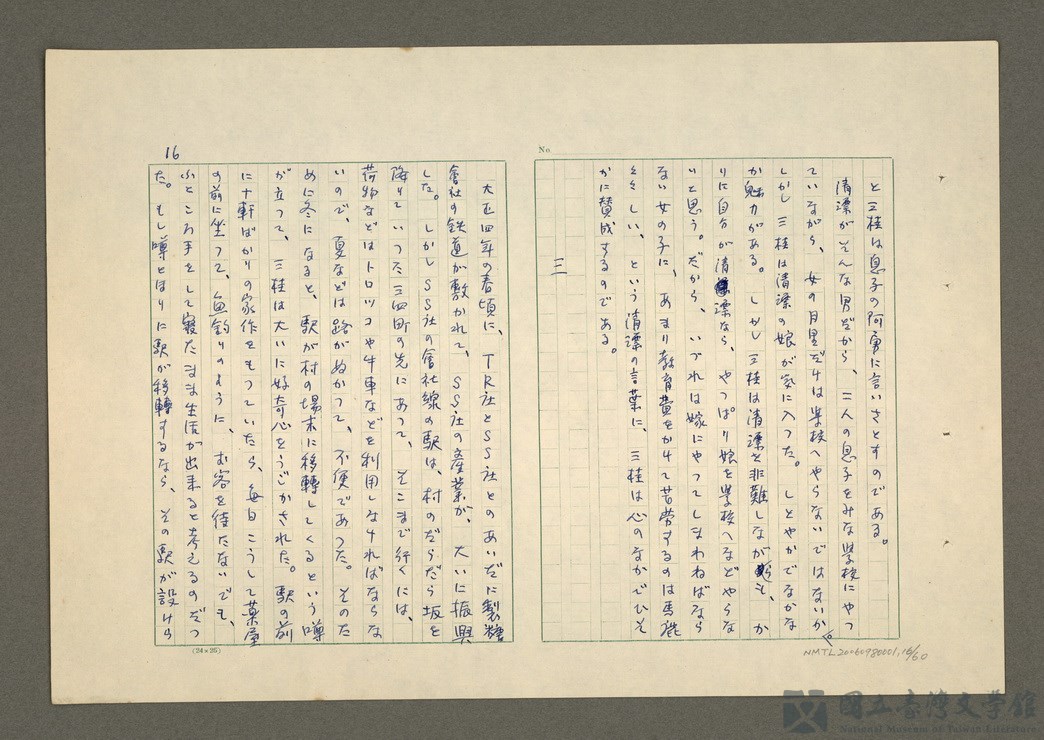 No
と三桂は息子の阿勇に言いさとすのである。
清漂がそんな男だから、二人の息子をみな学校にやつ
ていながら、女の月里だけは学校へやらないではないか。
しかし三桂は清漂の娘が気に入つた。しとやかでなかな
か魅力がある。しかし三桂は清漂を非難しながらも、か
りに自分が清漂なら、やつぱり娘を学校へなどやらな
いと思う。だから、いづれは嫁にやつてしまわねばなら
ない女の子に、あまり教育費をかけて苦労するのは馬鹿
々々しい、という清漂の言葉に、三桂は心のなかでひそ
かに賛成するのである。
三
16
大正四年の春頃に、TR社とSS社とのあいだに製糖
會社の鉄道が敷かれて、SS社の産業が、大いに振興
した。しかしSS社の會社線の駅は、村のだらだら坂を
降りていつた三四町の先にあつて、そこまで行くには、
荷物などはトロツコや牛車などを利用しなければならな
いので、夏などは路がぬかつて、不便であつた。そのた
めに冬になると、駅が村の場末に移轉してくるという噂
が立つて、三桂は大いに好奇心をうごかされた。駅の前
に十軒ばかりの家作をもつていたら、毎日こうして薬屋
の前に坐つて、魚釣りのように、お客を待たないでも、
ふところ手をして寝たまま生活が出来ると考えるのだつ
た。もし噂とほりに駅が移轉するなら、その駅が設けら
(24×25)
NMTL20060980001,16/60
國立臺灣文學館
National Museum of Taiwan Literature